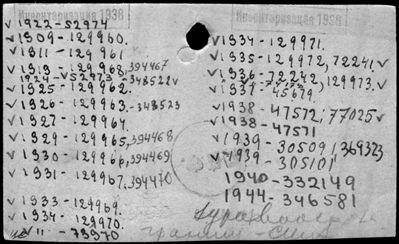 Инвентаризация 1938
Инвентаризация 1938
v 1922-52974
v 1909-129960.
v 1811-129961
v 1919-129968, 394467
1924-v52973-348522v
v 1925-129962.
v 1926-129963.-348523
v 1927-129964.
v 1929-129965, 394468
v 1930-129966, 394469
v 1931-129967, 394470
v 1933-129969.
v 1934-129970.
1811-73970
v 1934-129971.
v 1935-129972, 72241, v
v 1936-72242, 129973. v
v 1937-45679.
v 1938-47572; 77025 v
v 1938-47571
v 1939-305091, 369323
v 1939-305101
1940-332149
1944-346581